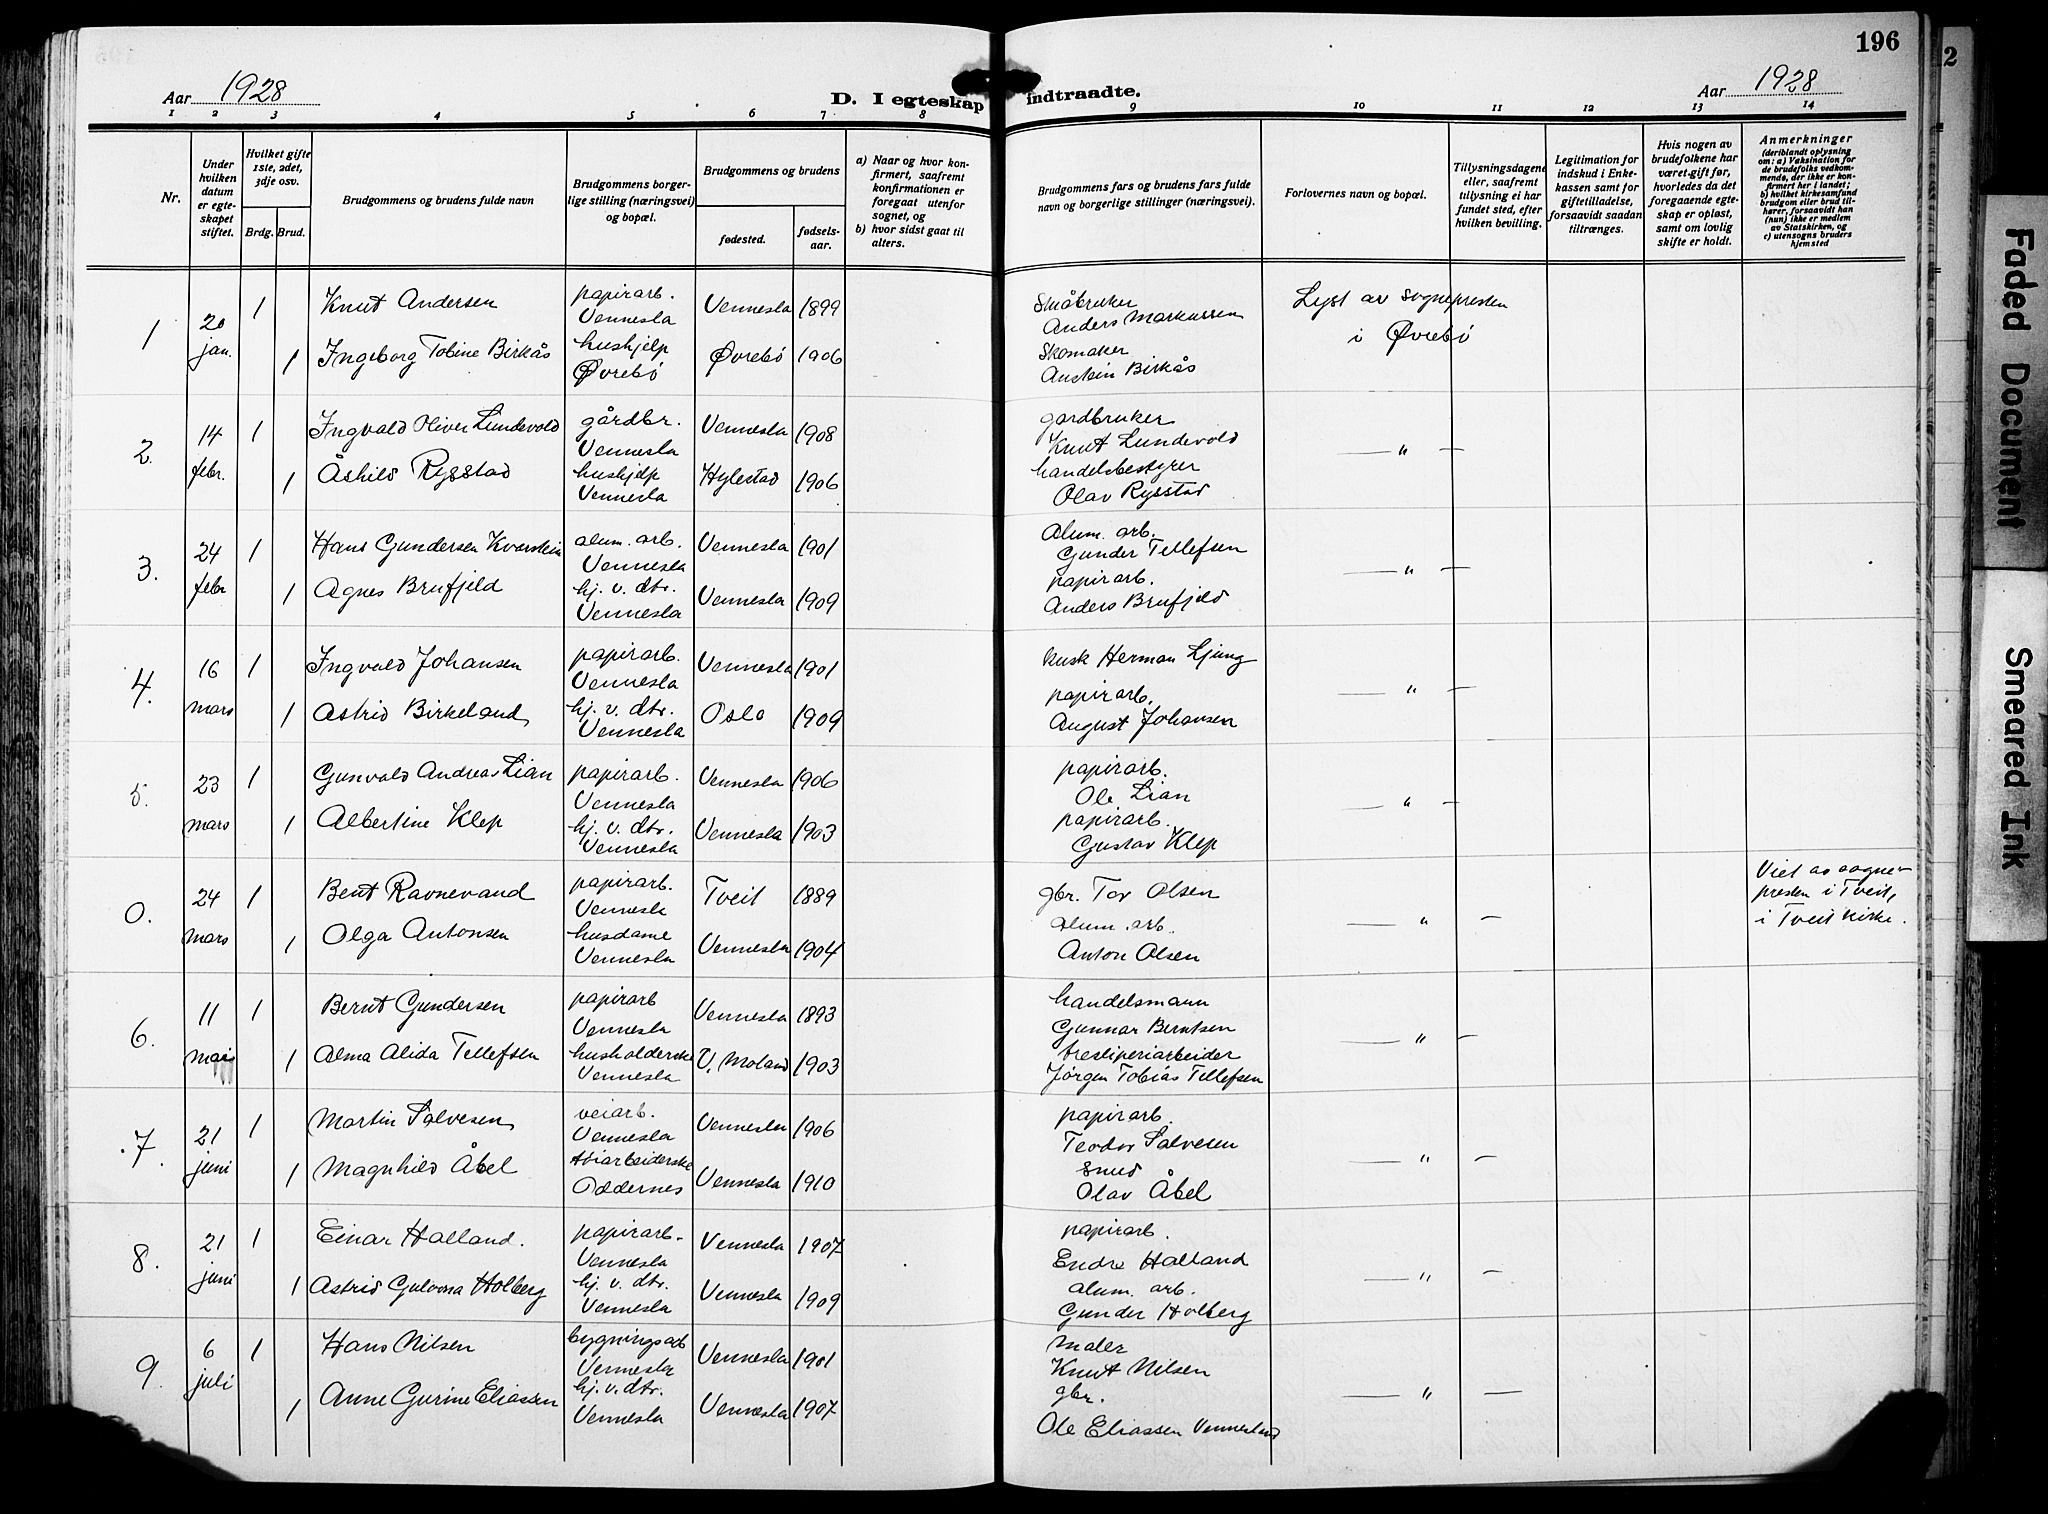 196
Aar 1928
D. I egteskap indtraadte.
Aar 1928
1 2 3 4 5 6 7 8 9 10 11 12 13 14
Nr.
Under hvilken datum er egteskapet stiftet.
Hvilket gifte 1ste, 2det, 3dje osv.
Brdg. Brud.
Brudgommens og brudens fulde navn
Brudgommens borgerlige stilling (næringsvei) og bopæl.
Brudgommens og brudens
fødested.
fødselsaar.
a) Naar og hvor konfirmert, saafremt konfirmationen er foregaat utenfor sognet, og
b) hvor sidst gaat til alters.
Brudgommens fars og brudens fars fulde navn og borgerlige stillinger (næringsvei).
Forlovernes navn og bopæl.
Tillysningsdagene eller, saafremt tilysning ei har fundet sted, efter hvilken bevilling.
Legitimation for indskud i Enkekassen samt for giftetilladelse, forsaavidt saadan tiltrænges.
Hvis nogen av brudefolkene har været gift før, hvorledes da det foregaaende egteskap er opløst, samt om lovlig skifte er holdt.
Anmerkninger
(deriblandt oplysning om: a) Vaksination for de brudefolks vedkommende, der ikke er konfirmert her i landet; b) hvilket kirkesamfund brudgom eller brud tilhører, forsaavidt han (hun) ikke er medlem av Statskirken, og c) utensogns bruders hjemsted
1 20 jan. 1 Knut Andersen papirarb. Vennesla Vennesla 1899 Småbruker Anders Markussen Lyst av sognepresten i Øvrebø
1 Ingeborg Tobine Birkås hushjelp Øvrebø Øvrebø 1906 Skomaker Anstein Birkås
2. 14 febr. 1 Ingvald Oliver Lundevold gårdbr. Vennesla Vennesla 1908 gardbruker Knut Lundevold — " —
1 Åshild Rysstad hushjelp Vennesla Hylestad 1906 handelsbestyrer Olav Rysstad
3. 24 febr 1 Hans Gundersen Kverstein alum. arb. Vennesla Vennesla 1901 Alum. arb. Gunder Tellefsen — " —
1 Agnes Brufjeld hj. v. dtr. Vennesla Vennesla 1909 papirarb. Anders Brufjeld
4. 16 mars 1 Ingvald Johansen papirarb. Vennesla Vennesla 1901 kusk Herman Ljung — " —
1 Astrid Birkeland hj. v. dtr. Vennesla Oslo 1909 papirarb. August Johansen
5. 23 mars 1 Gunvald Andreas Lian papirarb. Vennesla Vennesla 1906 papirarb. Ole Lian — " —
1 Albertine Klep hj. v. dtr. Vennesla Vennesla 1903 papirarb. Gustav Klep
0. 24 mars 1 Bent Ravnevand papirarb. Vennesla Tveit 1889 gbr. Tor Olsen — " — Viet av sognepresten i Tveit, i Tveit kirke.
1 Olga Antonsen husdame Vennesla Vennesla 1904 alum. arb. Anton Olsen
6. 11 mai 1 Bernt Gundersen papirarb Vennesla Vennesla 1893 handelsmann Gunnar Berntsen — " —
1 Alma Alida Tellefsen husholderske Vennesla V. Moland 1903 tresliperiarbeider Jörgen Tobias Tellefsen
7. 21 juni 1 Martin Salvesen veiarb. Vennesla Vennesla 1906 papirarb. Teodor Salvesen — " —
1 Magnhild Åbel Oddernes Vennesla 1910 Smed Olav Åbel
8. 21 juni 1 Einar Halland. papirarb. Vennesla Vennesla 1907 papirarb. Endre Halland — " —
1 Astrid Holberg hj. v. dtr. Vennesla Vennesla 1909 alum. arb. Gunder Holberg
9. 6 juli 1 Hans Nilsen bygningsarb Vennesla Vennesla 1901 maler Knut Nilsen — " —
1 Anne Gurine Eliassen hj. v. dtr. Vennesla Vennesla 1907 gbr. Ole Eliassen Vennesland
2
Faded Document
Smeared Ink